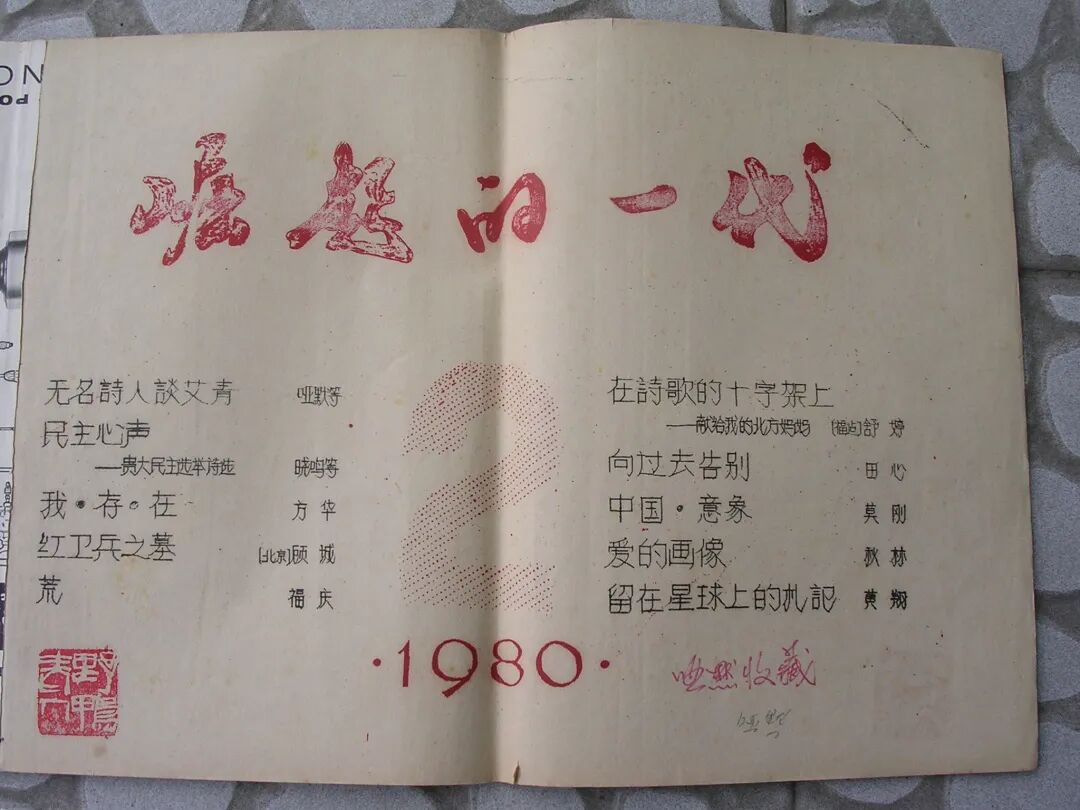 崛起的一代
无名詩人談艾青 哑默等
民主心声
——贵大民主选举诗选 晓鸣等
我·存·在 方华
红卫兵之墓 (北京)顾城
荒 福庆
在詩歌的十字架上
——献给我的北方妈妈 (福建)舒婷
向过去告别 田心
中国·意象 莫刚
爱的画像 秋林
留在星球上的札記 黄翔
2
·1980·
哑默收藏
哑默